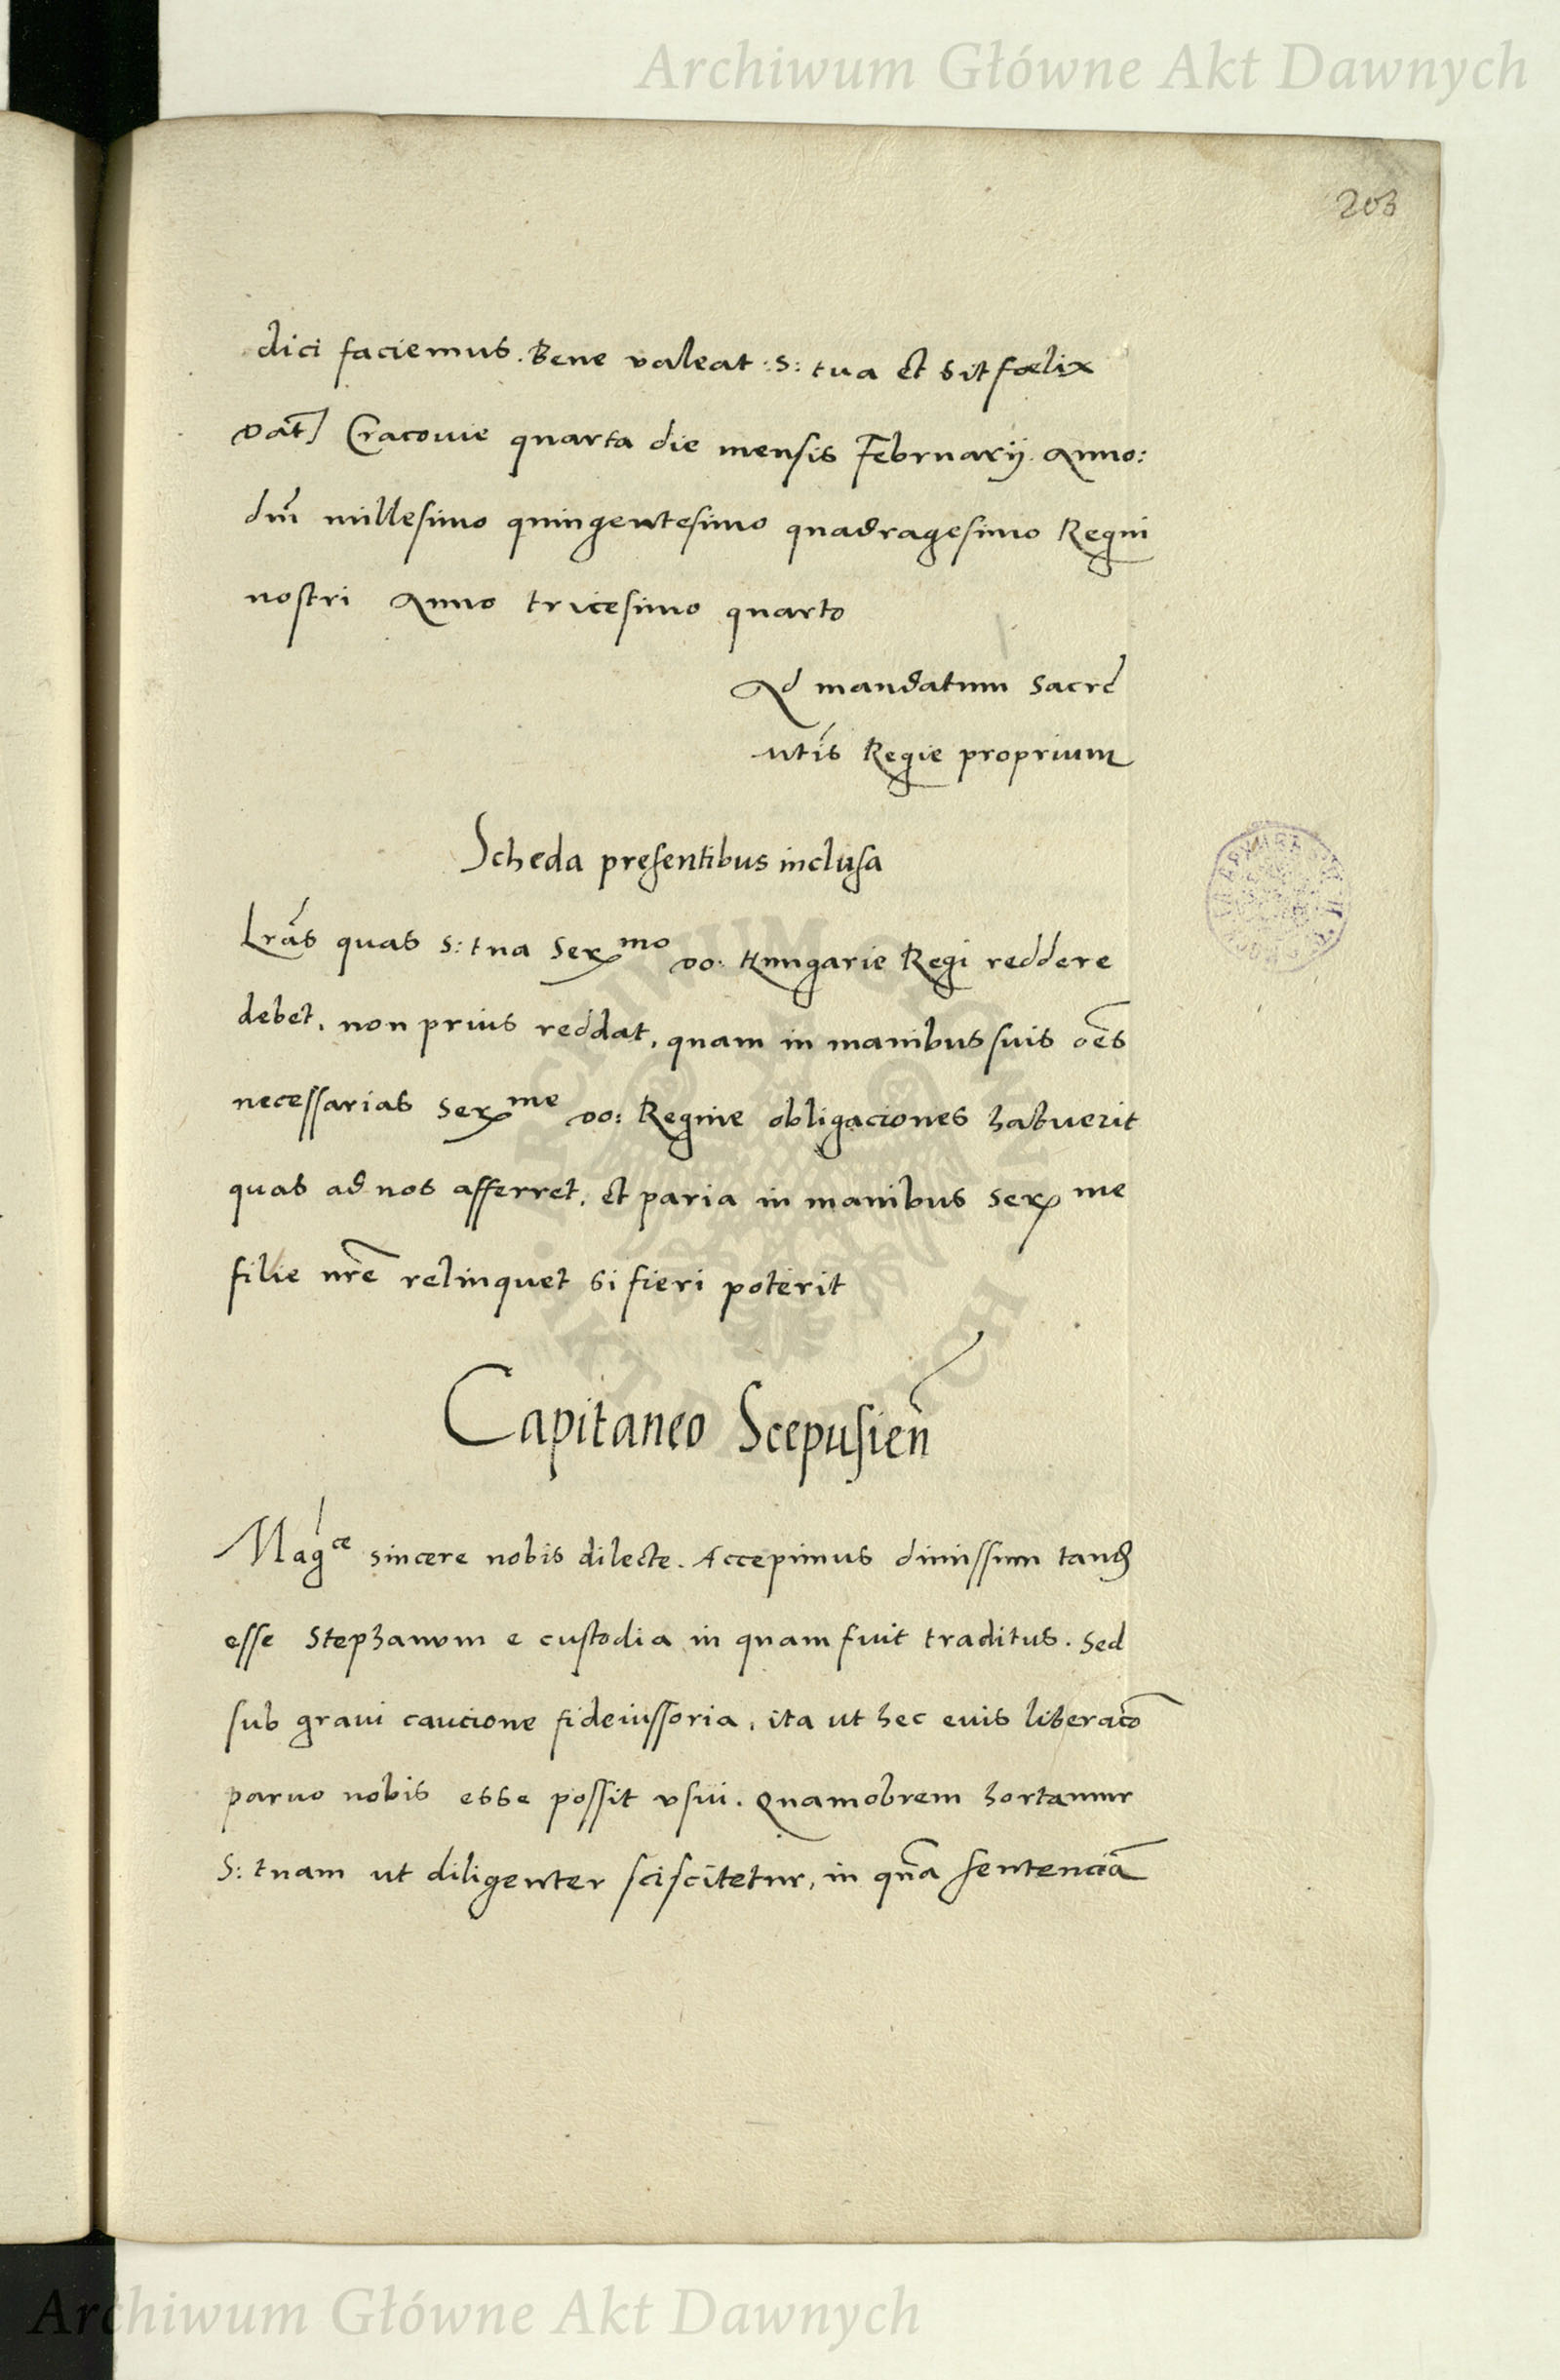 Archiwum Główne Akt Dawnych
203
dici faciemus. Bene valeat :S: tua et sit fœlix
Dat̄ Cracovie quarta die mensis Februarij. Anno:
dn̄i millesimo quingentesimo quadragesimo Regni
nostri Anno tricesimo quarto
Ad mandatum Sacre
mtis Regie proprium
Scheda presentibus inclusa
Lr̄as quas S: tua Serᵐᵒ Do: Hungarie Regi reddere
debet, non prius reddat, quam in manibus suis oēs
necessarias Serᵐᵉ Do: Regine obligaciones habuerit
quas ad nos afferret, et paria in manibus Ser me
filie nr̄e relinquet si fieri poterit
Capitaneo Scepusien̄
Magᶜᵉ sincere nobis dilecte. Accepimus dimissum tandē
esse Stephanum e custodia in quam fuit traditus. Sed
sub gravi caucione fideiussoria, ita ut hec euis liberaco̅
parvo nobis esse possit vsui. Quamobrem hortamur
S: tuam ut diligenter sciscitetur, in qn̄a sentenciā
Archiwum Główne Akt Dawnych